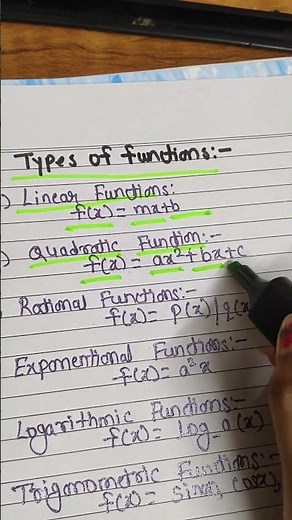 Types of functions:-
) Linear Functions:
f(x) = mx+b
) Quadratic Function:-
f(x) = ax²+bx+c
Rational Functions:-
f(x) = p(x)/q(x
Exponentional Functions:-
f(x) = a^x
Logarithmic Functions:-
f(x) = log_a(x)
Trigonometric Functions:-
f(x) = sinx, cosx,